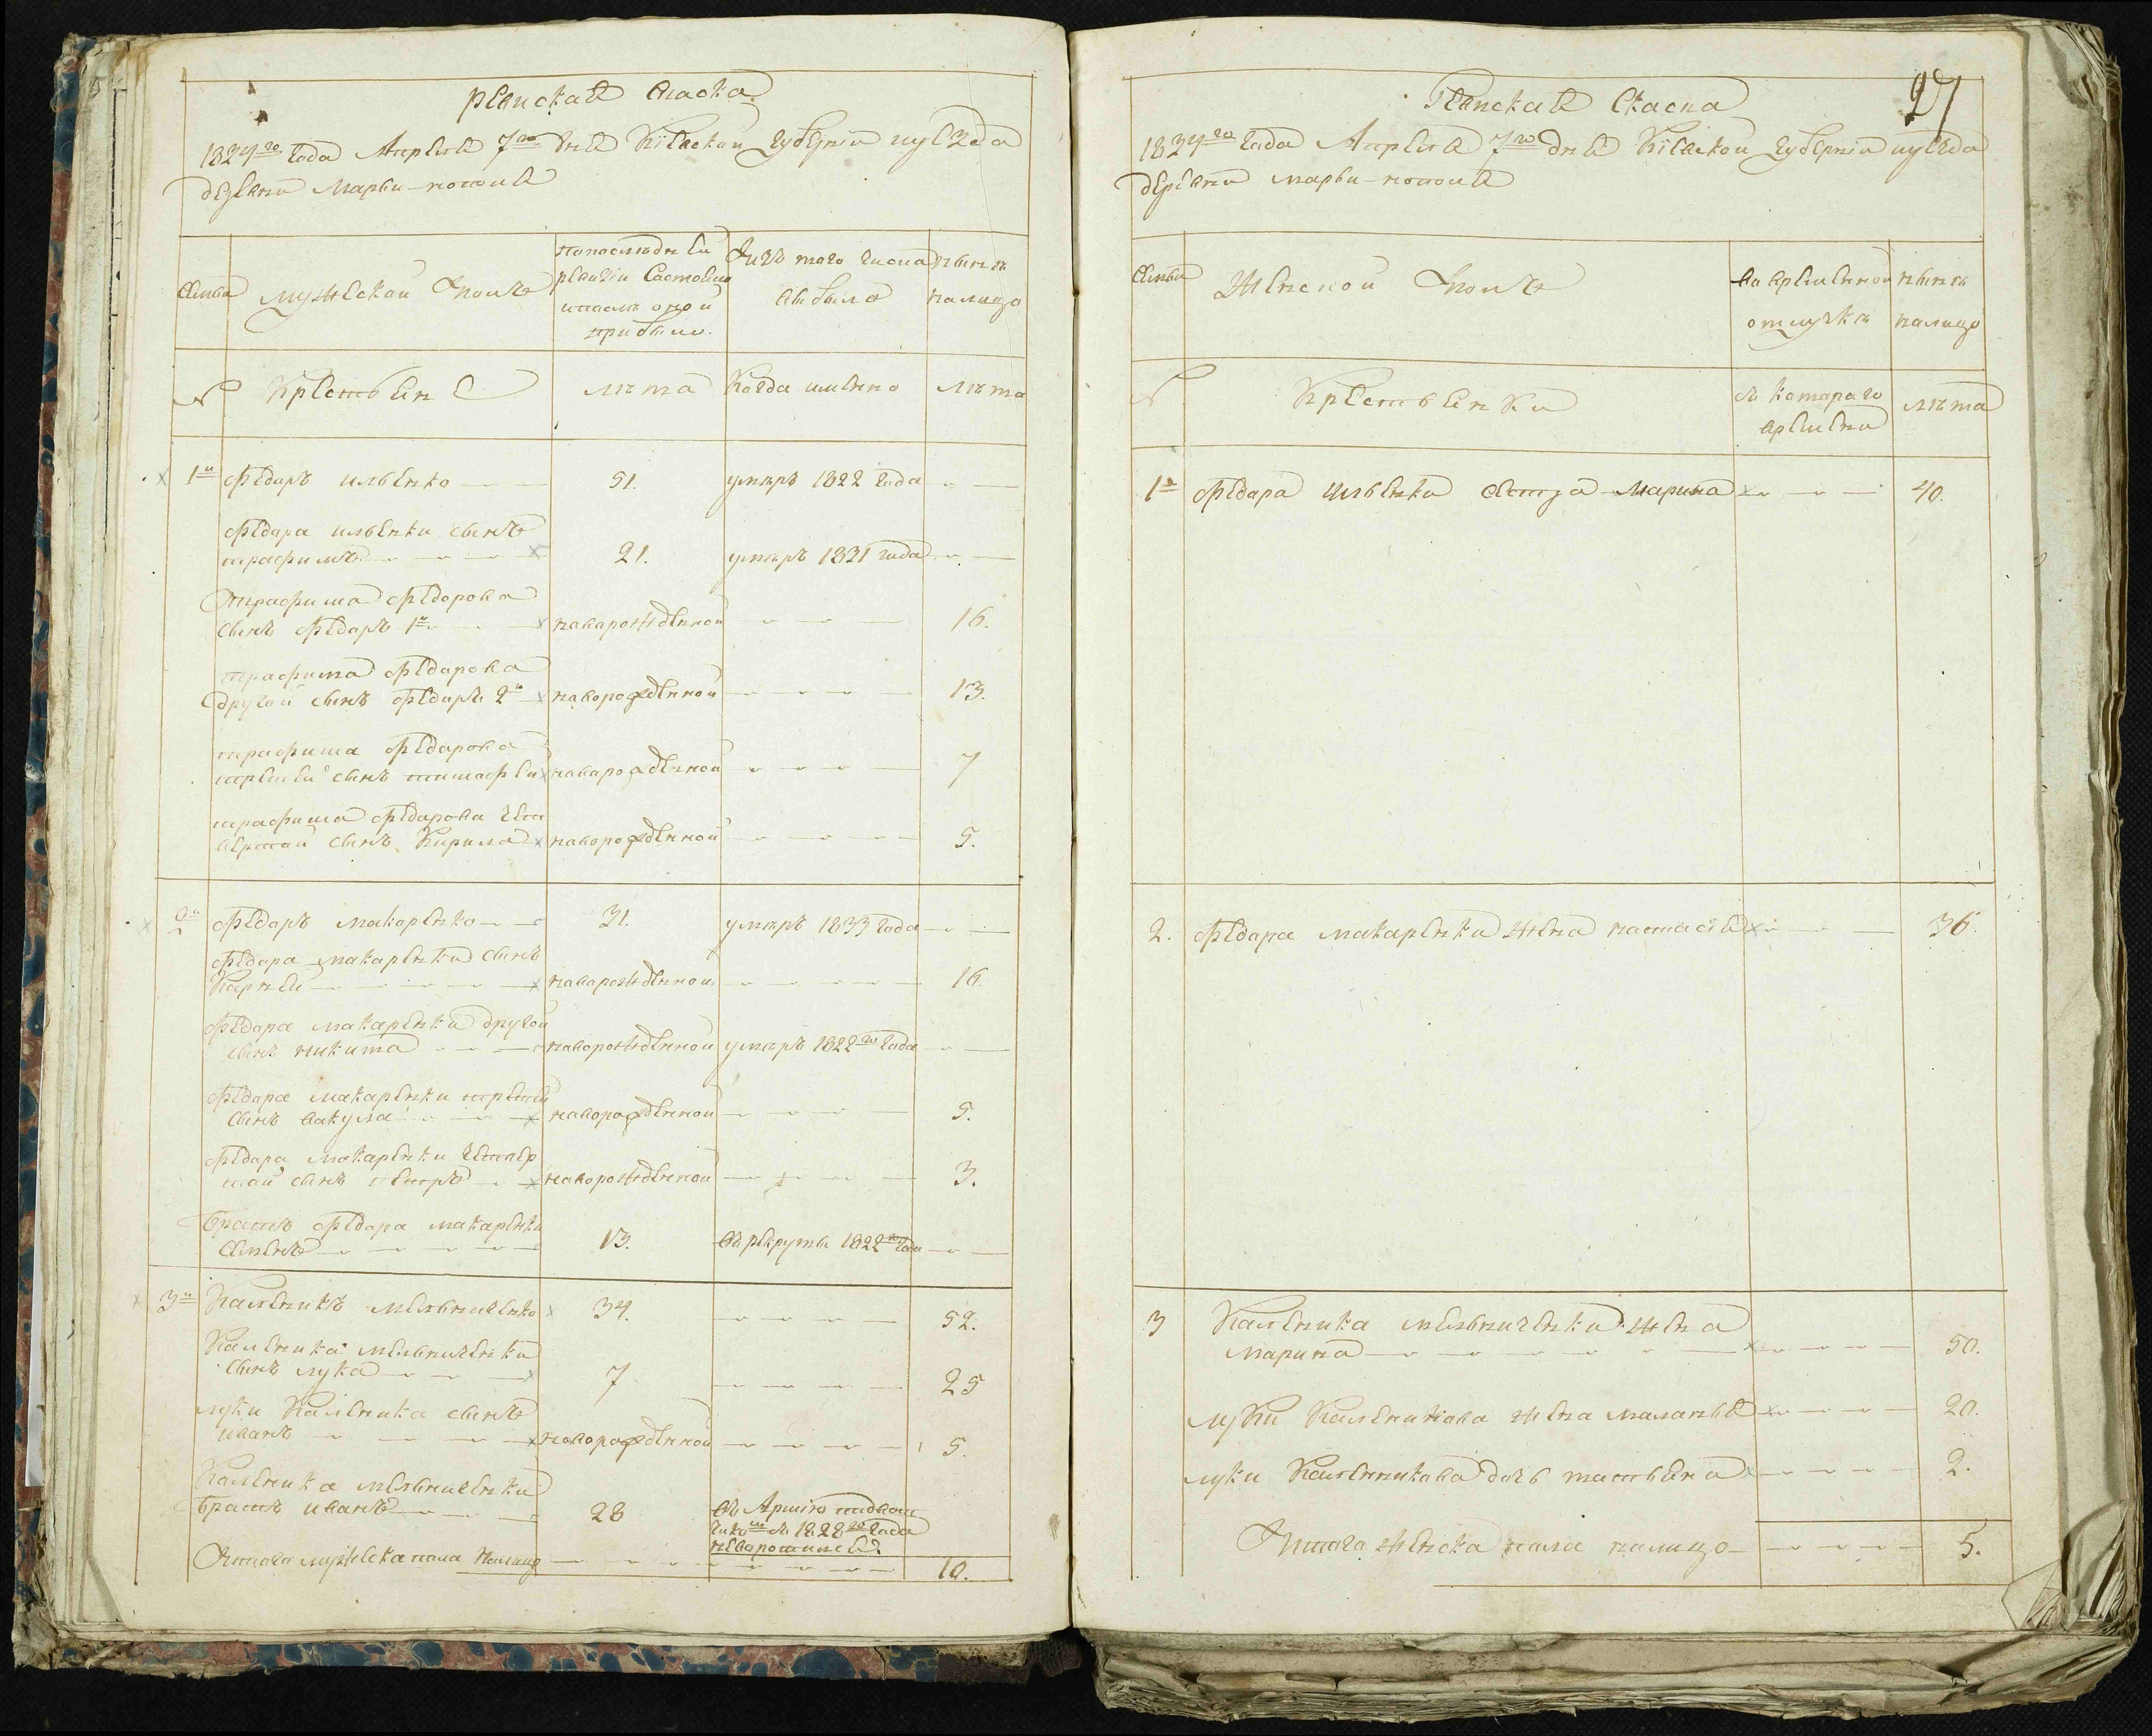 ревиская скаска
1834го года Апреля 7го дня Кіевской губерніи иуезда
деревни Марьи-
Семьи
мужескои полъ
попоследнеи
ревизіи состояло
ипосле оной
прибыло.
Изъ того числа
выбыло
ныне
налицо
№
Крестьяне
лета
Когда имянно
лета
1й Федаръ ильенко 51. умеръ 1822 года
Федара ильенки сынъ
трафимъ 21. умеръ 1831 года
Трафима Федорова
сынъ Федаръ 1й наварожденной 16.
трафима Федарова
другои сынъ Федаръ 2й наворожденной 13.
трафима Федарова
третеи сынъ тимафеи наварожденной 7
трафима Федарова чет
вертаи сынъ Кирила наворожденной 5.
2й Федаръ макаренко 31. умеръ 1833 года
Федара макаренки сынъ
Карнеи наварожденной 16.
Федара макаренки другои
сынъ никита наварожденной умеръ 1822го года
Федара макаренки третеи
сынъ вакула наворожденной 5.
Федара макаренки четвер
таи сынъ петръ наворожденной 3.
братъ Федара макаренки
Семенъ 13. въ рекруты 1822го года
3й Каленикъ мельниченко 34. 52.
Каленика мельниченки
сынъ лука 7 25
луки Каленика сынъ
иванъ наворожденной 5.
Каленика мельниченки
братъ иванъ 28 въ Армію
1828го года
Итого мужеска пола налицо 10.
27
Ревиская скаска
1834го года Апреля 7го дня Кіевской губерніи иуезда
деревни марьи-
Семьи
Женской полъ
во временной
отлучке
ныне
налицо
№
Крестьянки
съ котараго
времени
лета
1я Федара ильенка сестра Марина 40.
2. Федара макаренки жена настасія 36.
3 Каленика мельниченки жена
марина 50.
луки Каленикова жена маланья 20.
луки Каленикова дочь татьяна 2.
Итого женска пола налицо 5.